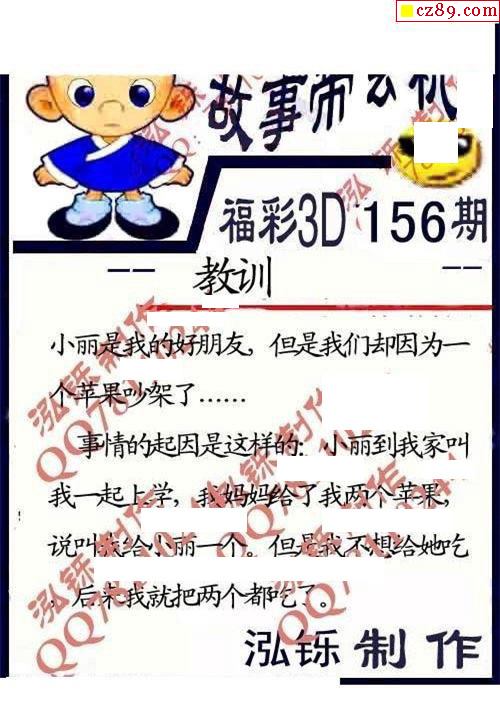 cz89.com
故事师玄机
福彩3D 156期
教训
小丽是我的好朋友，但是我们却因为一
个苹果吵架了……
事情的起因是这样的：小丽到我家叫
我一起上学，我妈妈给了我两个苹果，
说叫我给小丽一个。但是我不想给她吃
，后来我就把两个都吃了。
泓铄制作